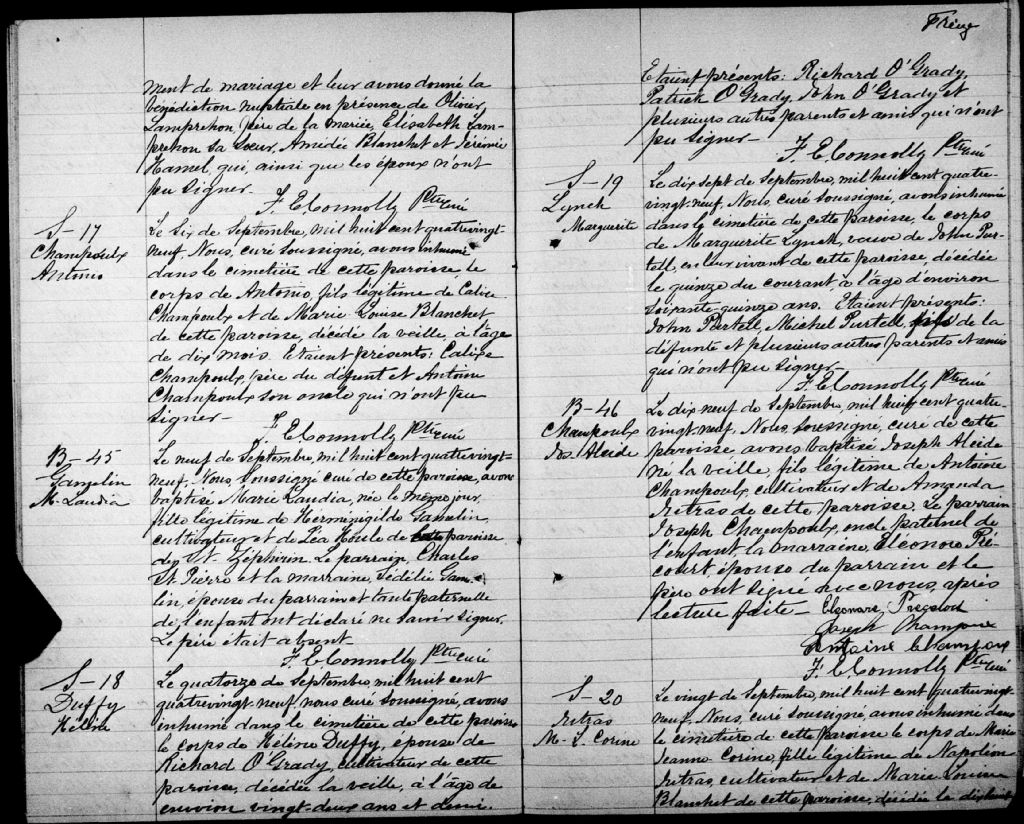 ment de mariage et leur avons donné la
bénédiction nuptiale en présence de Olivier
Lamprehon, père de la mariée, Elisabeth Lam-
prehon sa Soeur, Amédée Blanchet et Jérémie
Hamel, qui, ainsi que les époux n'ont
pu signer—
F. E. Connolly Ptre curé
S—17
Champoulx
Antonio
Le six de Septembre, mil huit cent quatre vingt-
neuf. Nous, curé soussigné, avons inhumé
dans le cimetière de cette paroisse, le
corps de Antonio, fils légitime de Calixe
Champoulx et de Marie Louise Blanchet
de cette paroisse, décédé la veille, à l'âge
de dix mois. Etaient présents: Calixe
Champoulx, père du défunt et Antoine
Champoulx son oncle qui n'ont pu
signer—
F. E. Connolly Ptre curé
B—45
Gamelin
M. Laudia
Le neuf de Septembre, mil huit cent quatre vingt-
neuf, Nous, soussigné curé de cette paroisse, avons
baptisé Marie Laudia, née le même jour,
fille légitime de Herménigilde Gamelin,
cultivateur et de Léa Houle de paroisse
de St. Zéphirin. Le parrain, Charles
St Pierre et la marraine, Sédélie Game-
lin, épouse du parrain et tante paternelle
de l'enfant ont déclaré ne savoir signer.
Le père était absent—
F. E. Connolly Ptre curé
S—18
Duffy
Hélène
Le quatorze de Septembre, mil huit cent
quatre vingt neuf, nous curé soussigné, avons
inhumé dans le cimetière de cette paroisse
le corps de Hélène Duffy, épouse de
Richard O'Grady, cultivateur de cette
paroisse, décédée la veille, à l'âge de
environ vingt-deux ans et demi.
Etaient présents: Richard O'Grady,
Patrick O'Grady, John O'Grady et
plusieurs autres parents et amis qui n'ont
pu signer—
F. E. Connolly Ptre curé
S—19
Lynch
Marguerite
Le dix sept de Septembre, mil huit cent quatre-
vingt-neuf. Nous, curé soussigné, avons inhumé
dans le cimetière de cette paroisse, le corps
de Marguerite Lynch, veuve de John Pur-
tell, en leur vivant de cette paroisse, décédée
le quinze du courant à l'âge d'environ
soixante-quinze ans. Etaient présents:
John Purtell, Michel Purtell, fils de la
défunte et plusieurs autres parents et amis
qui n'ont pu signer—
F. E. Connolly Ptre curé
B—46
Champoulx
Jos. Alcide
Le dix neuf de Septembre, mil huit cent quatre
vingt-neuf. Nous, soussigné, curé de cette
paroisse avons baptisé Joseph Alcide
né la veille, fils légitime de Antoine
Champoulx, cultivateur et de Amanda
Jutras de cette paroisse. Le parrain
Joseph Champoulx, oncle paternel de
l'enfant, la marraine, Eléonore Pré-
court, épouse du parrain et le
père ont signé avec nous, après
lecture faite—
Joseph Champoux
Antoine Champoux
F. E. Connolly Ptre curé
S—20
Jutras
M. L. Corine
Le vingt de Septembre, mil huit cent quatre vingt-
neuf. Nous, curé soussigné, avons inhumé dans
le cimetière de cette paroisse le corps de Marie
Jeanne Corine, fille légitime de Napoléon
Jutras, cultivateur et de Marie Louise
Blanchet de cette paroisse, décédée le dix huit